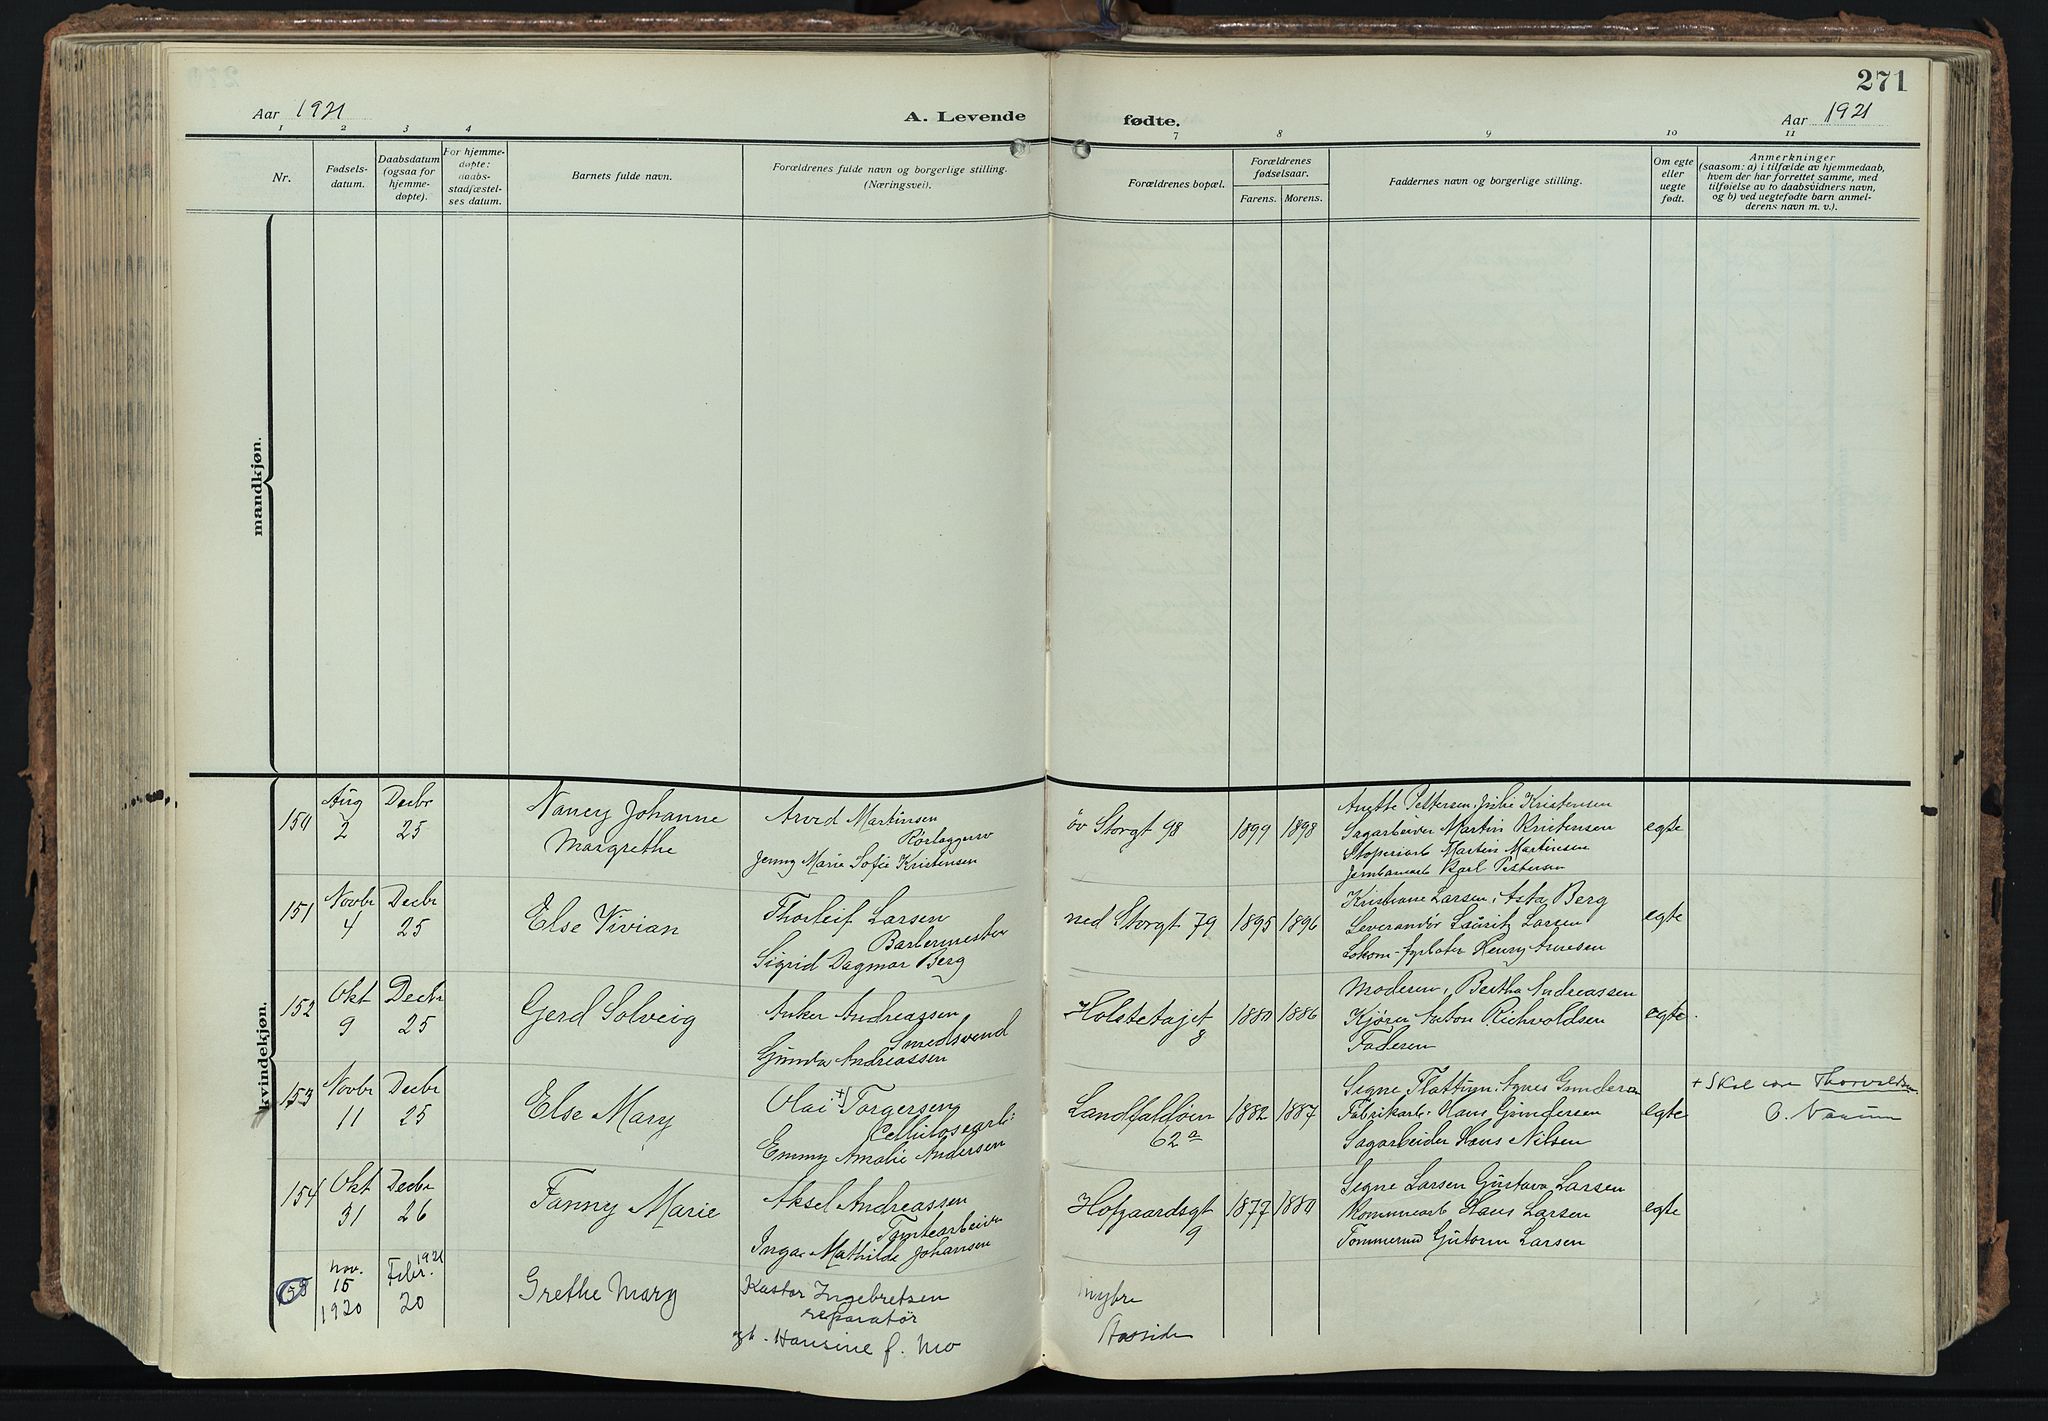 271
Aar 1921
A. Levende
fødte.
Aar 1921
1 2 3 4 7 8 9 10 11
Nr.
Fødsels-
datum.
Daabsdatum
(ogsaa for
hjemme-
døpte).
For hjemme-
døpte:
daabs-
stadfæstel-
ses datum.
Barnets fulde navn.
Forældrenes fulde navn og borgerlige stilling.
(Næringsvei).
Forældrenes bopæl.
Forældrenes
fødselsaar.
Farens. Morens.
Faddernes navn og borgerlige stilling.
Om egte
eller
uegte
født.
Anmerkninger
(saasom: a) i tilfælde av hjemmedaab,
hvem der har forrettet samme, med
tilføielse av to daabsvidners navn,
og b) ved uegtefødte barn anmel-
derens navn m. v.).
mandkjøn.
kvindekjøn.
150
Aug
2
Decbr
25
Nancy Johanne
Margrethe
Arvid Martinsen
Rørlæggersv
Jenny Marie Sofie Kristensen
øv Storgt 98
1899 1898
Anette Pettersen, Julie Kristensen
Sagarbeider Martin Kristensen
Martin Martinsen
Karl Pettersen
egte
151
Novbr
4
Decbr
25
Else Vivian
Thorleif Larsen
Barbermester
Sigrid Dagmar Berg
ned Storgt 79
1895 1896
Kristiane Larsen, Asta Berg
Leverandør Lauritz Larsen
Lokom-fyrbøter Henry
egte
152
Okt
9
Decbr
25
Gerd Solveig
Anker Andreassen
Smedsvend
Gunda Andreassen
Holstetajet
8
1880 1886
Moderen, Bertha Andreassen
Kjører Anton Richvoldsen
Faderen
egte
153
Novbr
11
Decbr
25
Else Mary
Olai +) Torgersen
Cellulosearb:
Emmy Amalie Andersen
Landfaldøien
62a
1882 1887
Signe Agnes Gundersen
Fabrikarb. Hans Gundersen
Sagarbeider Hans Nilsen
egte
+ Skal være Thorvaldsen
154
Okt
31
Decbr
26
Fanny Marie
Aksel Andreassen
Tomtearbeider
Inga Mathilde Johansen
Hofgaardsgt
9
1877 1880
Signe Larsen Gustava Larsen
Kommunearb Hans Larsen
Tømmermd Gutorm Larsen
egte
155
nov.
15
1920
Febr. 1921
20
Grethe Mary
Kastor Ingebretsen
reparatør
Hansine f. Mo
Myhre
Aasside